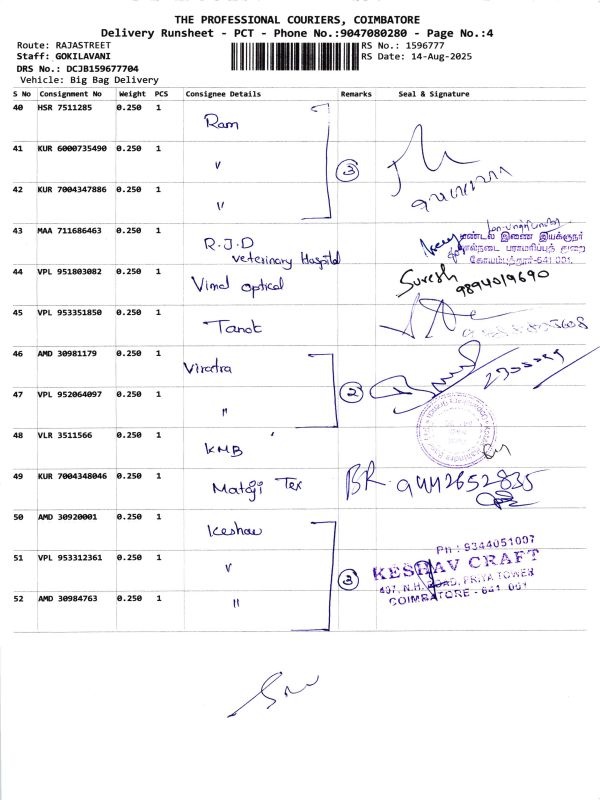 THE PROFESSIONAL COURIERS, COIMBATORE
Delivery Runsheet - PCT - Phone No.:9047080280 - Page No.:4
Route: RAJASTREET
RS No.: 1596777
Staff: GOKILAVANI
RS Date: 14-Aug-2025
DRS No.: DCJB159677704
Vehicle: Big Bag Delivery
S No Consignment No Weight PCS Consignee Details Remarks Seal & Signature
40 HSR 7511285 0.250 1 Ram
41 KUR 6000735490 0.250 1 〃 3
42 KUR 7004347886 0.250 1 〃
43 MAA 711686463 0.250 1 R.J.D
veterinary Hospital
மண்டல இணை இயக்குநர்
கால்நடை பராமரிப்புத் துறை
கோயம்புத்தூர்-641 001.
44 VPL 951803082 0.250 1 Vimal optical Suresh
9894019690
45 VPL 953351850 0.250 1 Tanot
46 AMD 30981179 0.250 1 Viratra
47 VPL 952064097 0.250 1 〃 2
48 VLR 3511566 0.250 1 KMB
49 KUR 7004348046 0.250 1 Mataji Tex BR. 9442652835
50 AMD 30920001 0.250 1 Keshav
51 VPL 953312361 0.250 1 〃 3
52 AMD 30984763 0.250 1 〃
Ph : 9344051007
KESHAV CRAFT
407, N.H. ROAD, PRIYA TOWER
COIMBATORE - 641 001